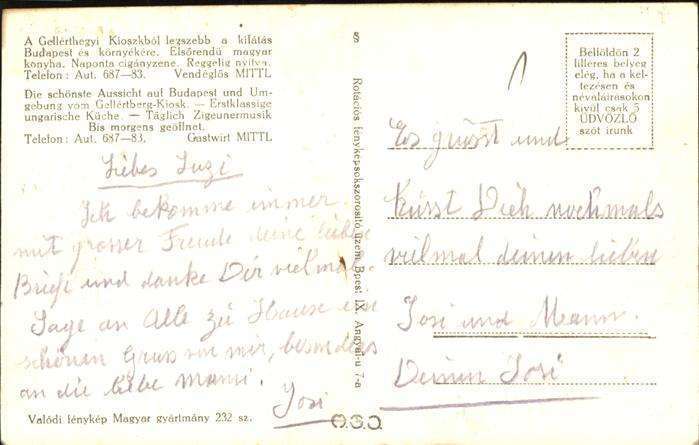 A Gellérthegyi Kioszkból legszebb a kilátás
Budapest és környékére. Elsőrendű magyar
konyha. Naponta cigányzene. Reggelig nyitva.
Telefon: Aut. 687—83. Vendéglős MITTL
Die schönste Aussicht auf Budapest und Um-
gebung vom Gellértberg-Kiosk. — Erstklassige
ungarische Küche. — Täglich Zigeunermusik
Bis morgens geöffnet.
Telefon: Aut. 687—83. Gastwirt MITTL
Liebes Suzi
Ich bekomme immer
mit grosser Freude deine liebe
Briefe und danke Dir vielmal.
Sage an Alle zu Hause
schönen Gruss von mir, besonders
an die liebe Mami.
Josi
Valódi fénykép Magyar gyártmány 232 sz.
§
Rotációs fényképsokszorosító üzem Bpest, IX. Angyal-u 7-a
O.G.O.
Belföldön 2
filléres bélyeg
elég, ha a kel-
tezésen és
névaláírásokon
kívül csak 5
ÜDVÖZLŐ
szót irunk
Es grüsst und
Küsst Dich nochmals
vielmal deinen lieben
Josi und Mann.
Deinen Josi